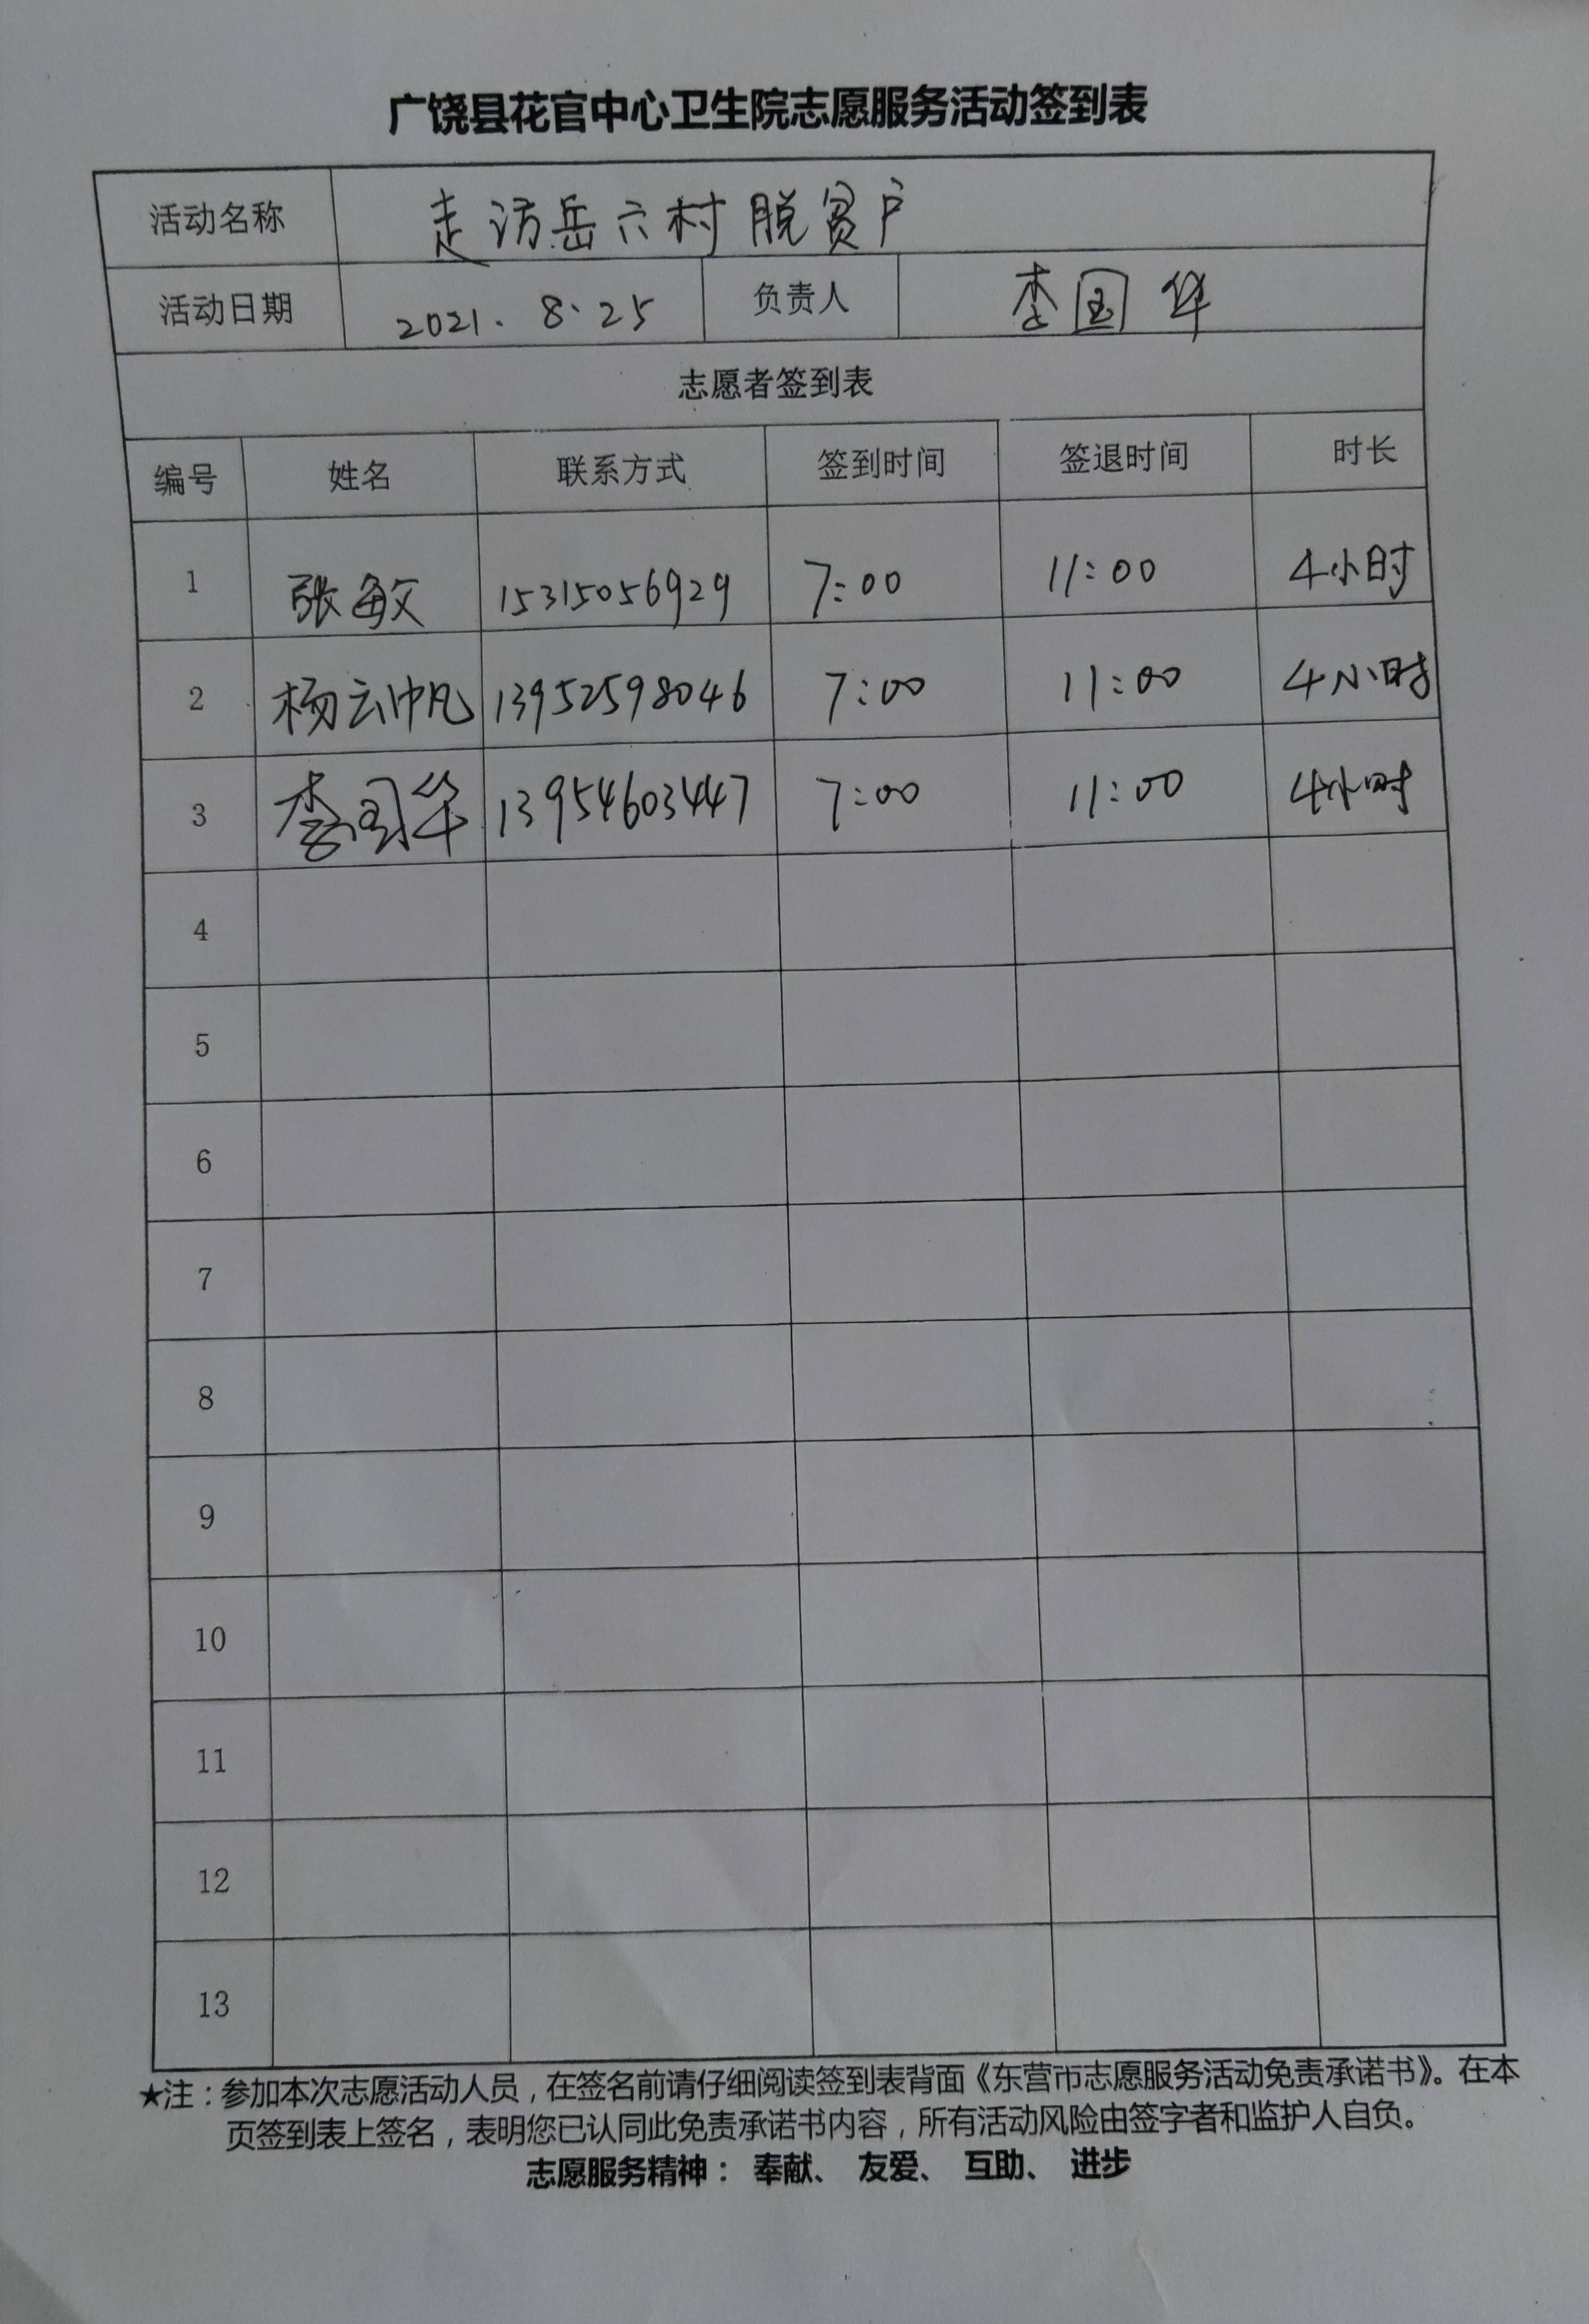 广饶县花官中心卫生院志愿服务活动签到表
活动名称 走访岳六村脱贫户
活动日期 2021.8.25 负责人 李国华
志愿者签到表
编号 姓名 联系方式 签到时间 签退时间 时长
1 张敏 15315056929 7:00 11:00 4小时
2 杨云帆 13952598046 7:00 11:00 4小时
3 李国华 13954603447 7:00 11:00 4小时
4
5
6
7
8
9
10
11
12
13
★注：参加本次志愿活动人员，在签名前请仔细阅读签到表背面《东营市志愿服务活动免责承诺书》。在本
页签到表上签名，表明您已认同此免责承诺书内容，所有活动风险由签字者和监护人自负。
志愿服务精神： 奉献、 友爱、 互助、 进步